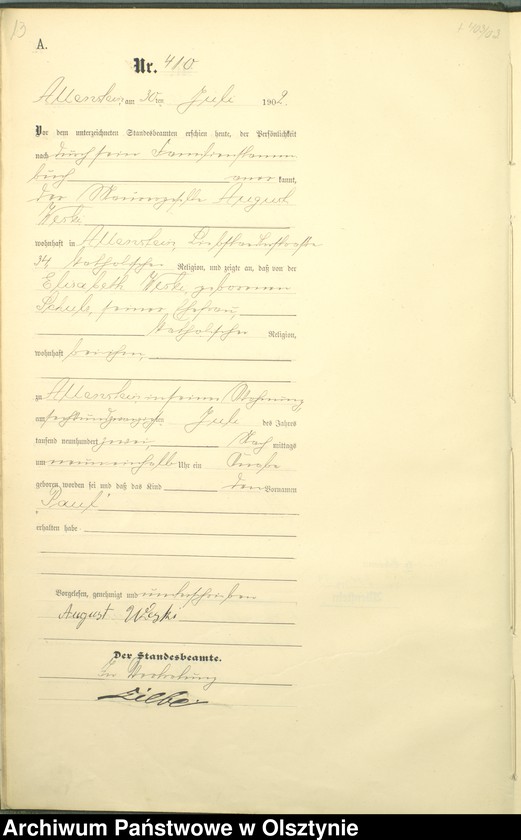 13
A.
Nr. 410.
Allenstein, am 30ten Juli 1902.
Vor dem unterzeichneten Standesbeamten erschien heute, der Persönlichkeit
nach durch sein Familienstamm
buch anerkannt,
der Maurergeselle August
wohnhaft in Allenstein, Liebstädterstrasse
34, katholischer Religion, und zeigte an, daß von der
Elisabeth geborenen
seiner Ehefrau,
katholischer Religion,
wohnhaft bei ihm,
zu Allenstein in seiner Wohnung,
am sechsundzwanzigsten Juli des Jahres
tausend neunhundert zwei, Nach mittags
um neuneinhalb Uhr ein Knabe
geboren worden sei und daß das Kind den Vornamen
"Paul"
erhalten habe.
Vorgelesen, genehmigt und unterschrieben
August
Der Standesbeamte.
In Vertretung
Archiwum Państwowe w Olsztynie